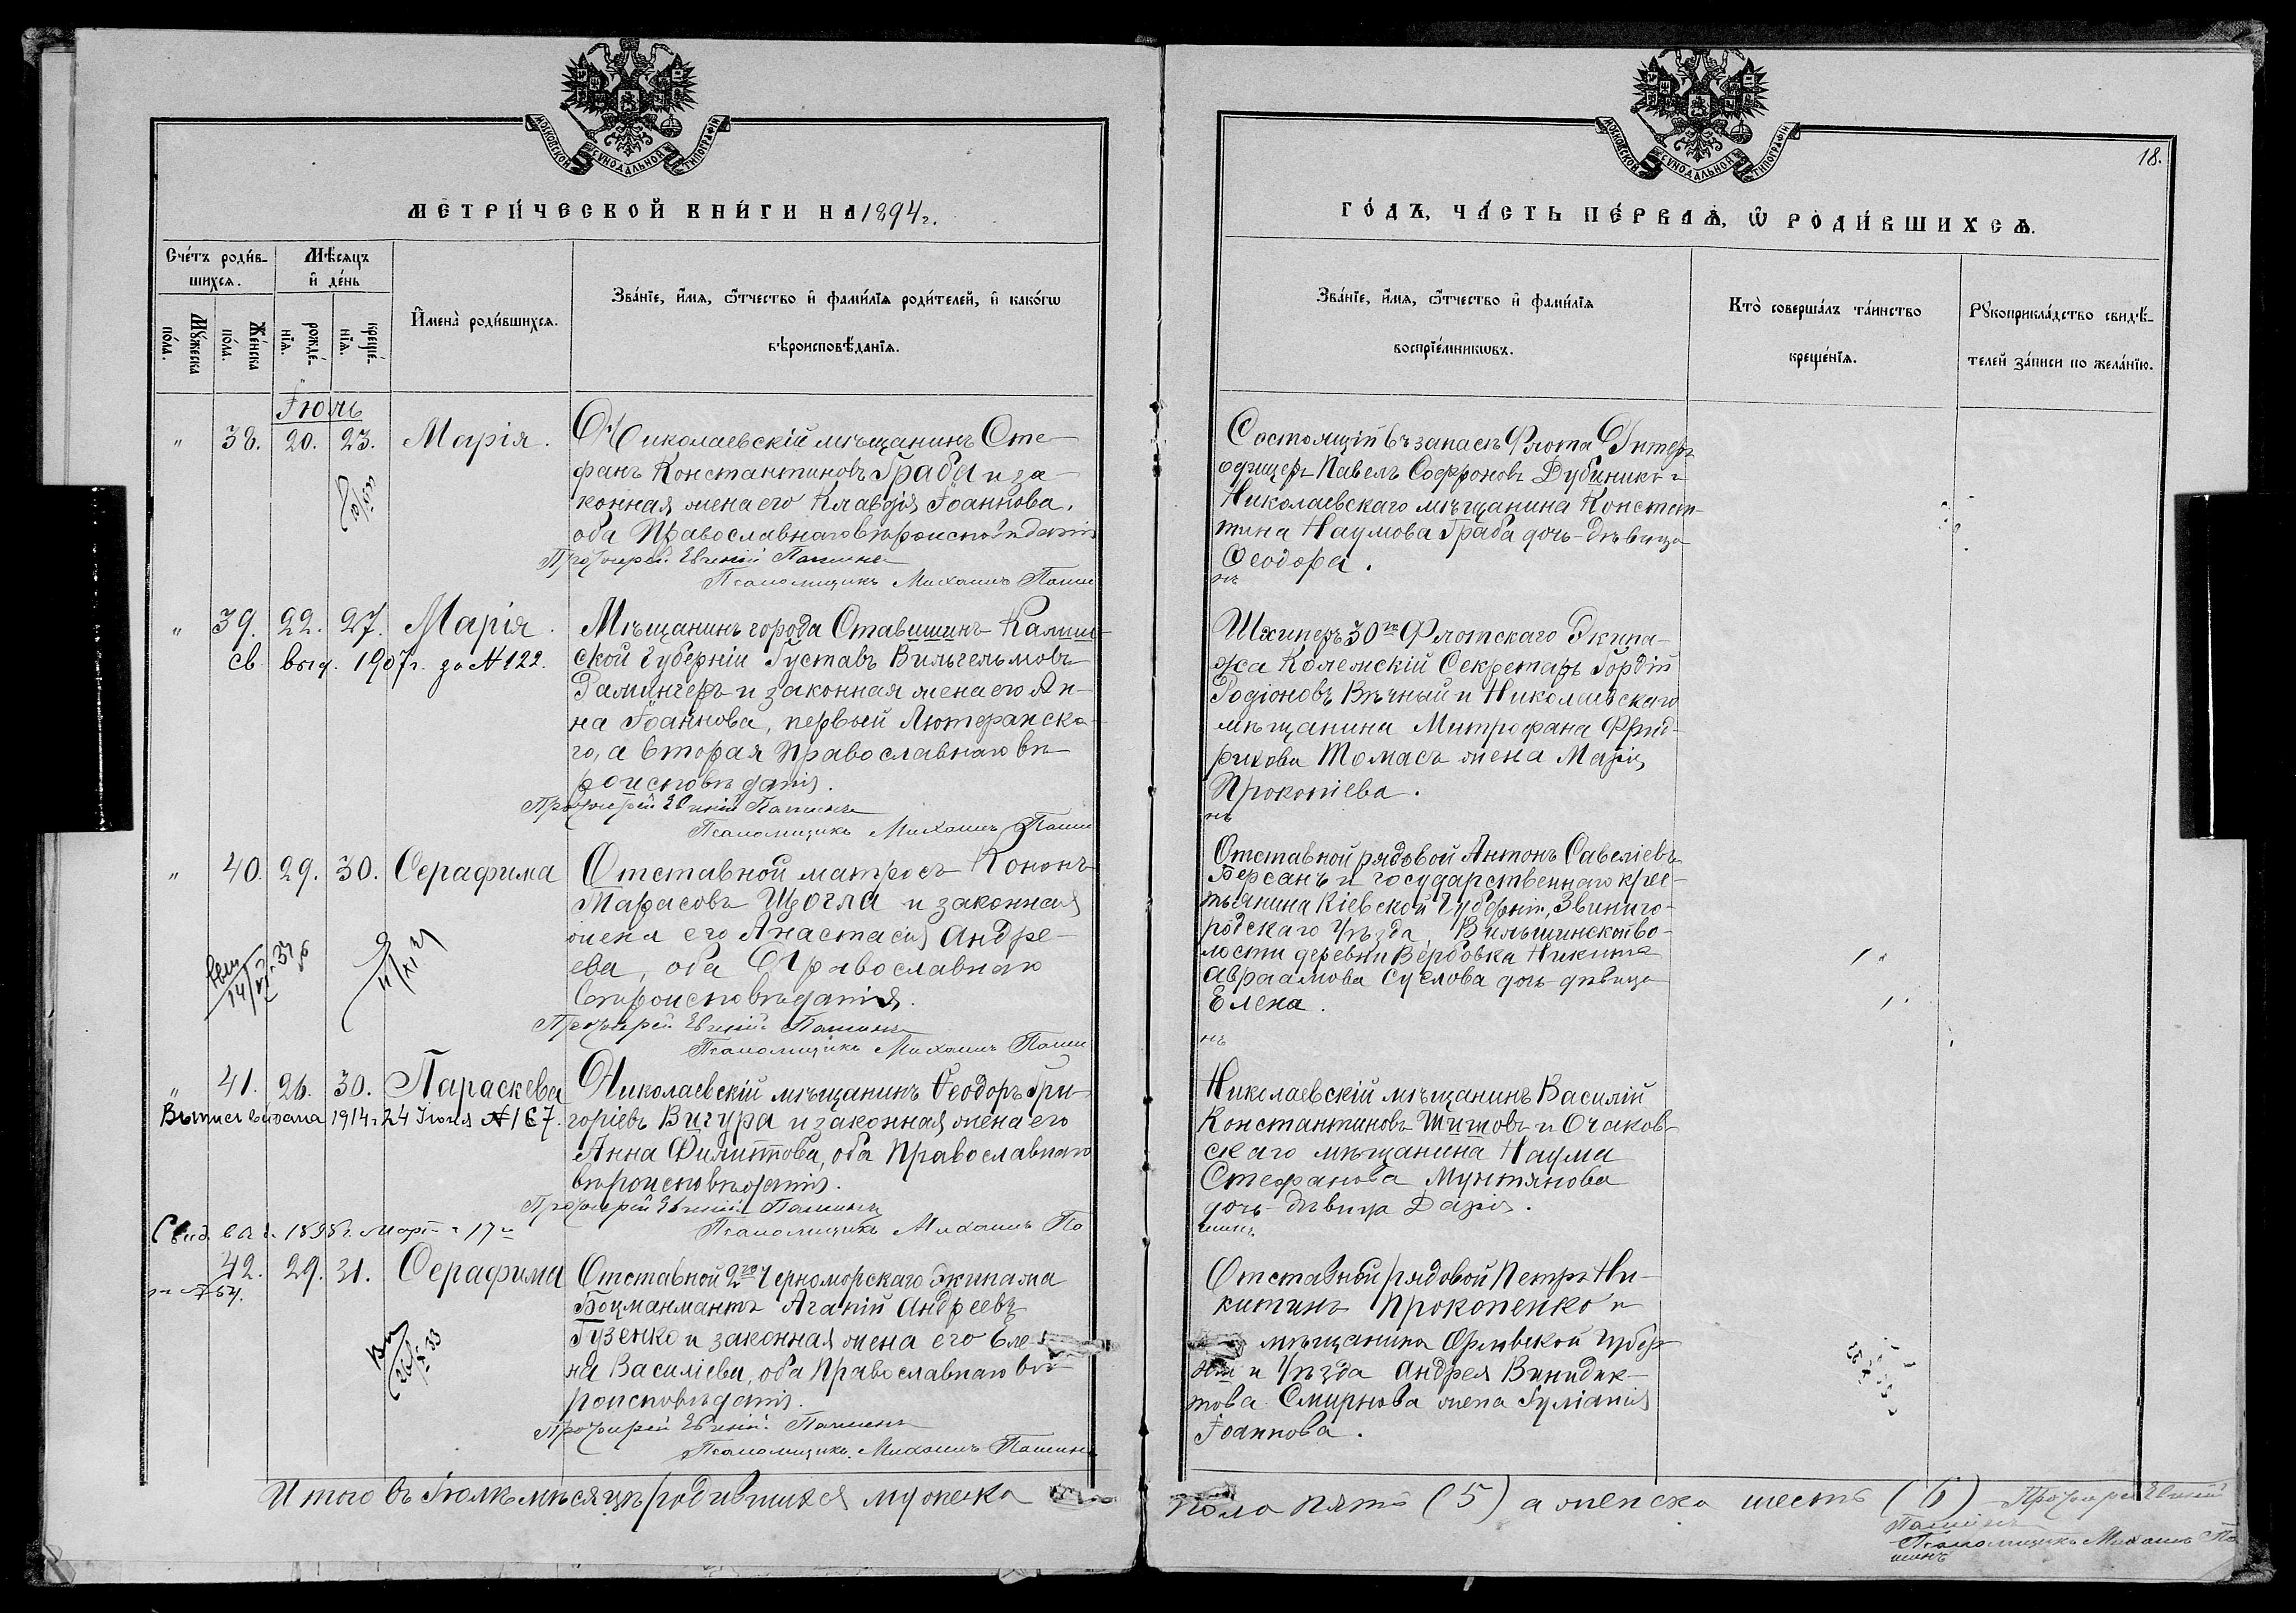 МОСКОВСКОЙ СѴНОДАЛЬНОЙ ТИПОГРАФІИ
МЕТРИ́ЧЕСКОЙ КНИ́ГИ НА 1894 г.
Сче́тъ роди́в-
шихсѧ.
Мѣ́сѧцъ
и҆ де́нь
Мꙋ́жеска
по́ла.
Же́нска
по́ла.
рожде́-
нїѧ.
креще́-
нїѧ.
И҆мена̀ роди́вшихсѧ.
Зва́нїе, и҆́мѧ, ѻ҆́тчество и҆ фами́лїѧ роди́телей, и҆ како́гѡ
вѣроисповѣ́данїѧ.
Іюль
" 38. 20. 23. Марія.
Николаевскій мѣщанинъ Сте-
фанъ Константиновъ Граба и за-
конная жена его Клавдія Іоаннова,
оба Православнаго вѣроисповѣданія
Протоіерей Евгеній Пашинъ
Псаломщикъ Михаилъ Паши
" 39. 22. 27. Марія.
св. выд. 1907 г. за № 122.
Мѣщанинъ города Ставишинъ Калиш-
ской Губерніи Густавъ Вильгельмовъ
Рамингеръ и законная жена его Ан-
на Іоаннова, первый Лютеранска-
го, а вторая Православнаго вѣ-
роисповѣданія.
Протоіерей Евгеній Пашинъ
Псаломщикъ Михаилъ Паши
" 40. 29. 30. Серафима
Отставной матросъ Кононъ
Тарасовъ Щогла и законная
жена его Анастасія Андре-
ева, оба Православнаго
вѣроисповѣданія.
Протоіерей Евгеній Пашинъ
Псаломщикъ Михаилъ Паши
" 41. 26. 30. Параскева
Выпись выдана 1914 г. 24 Іюня № 167.
Николаевскій мѣщанинъ Ѳеодоръ Гри-
горіевъ Вигура и законная жена его
Анна Филиппова, оба Православнаго
вѣроисповѣданія.
Протоіерей Евгеній Пашинъ
Псаломщикъ Михаилъ Па
42. 29. 31. Серафима
Отставной 2го Черноморскаго Экипажа
Боцманматъ Агапій Андреевъ
Гузенко и законная жена его Еле-
на Василіева, оба Православнаго вѣ-
роисповѣданія.
Протоіерей Евгеній Пашинъ
Псаломщикъ Михаилъ Пашинъ
Итого въ Іюлѣ мѣсяцѣ родившихся мужеска
18.
МОСКОВСКОЙ СѴНОДАЛЬНОЙ ТИПОГРАФІИ
ГО́ДЪ, ЧА́СТЬ ПЕ́РВАѦ, Ѡ҆ РОДИ́ВШИХСѦ.
Зва́нїе, и҆́мѧ, ѻ҆́тчество и҆ фами́лїѧ
воспрїе́мникѡвъ.
Кто̀ соверша́лъ та́инство
креще́нїѧ.
Рꙋкоприкла́дство свидѣ́-
телей за́писи по жела́нїю.
Состоящій въ запасѣ Флота Унтеръ
офицеръ Павелъ Софроновъ Дубиникъ и
Николаевскаго мѣщанина Констан-
тина Наумова Граба дочь-дѣвица
Ѳеодора.
нъ
Шхиперъ 30го Флотскаго Экипа-
жа Колежскій Секретарь Гордій
Родіоновъ Вѣчный и Николаевскаго
мѣщанина Митрофана Фрид-
рихова Томасъ жена Марія
Прокопіева.
нъ
Отставной рядовой Антонъ Савеліевъ
Берсанъ и государственнаго крес-
тьянина Кіевской Губерніи, Звиниго-
родскаго Уѣзда, Вильшинской во-
лости деревни Вербовка Никита
Авраамова Суслова дочь-дѣвица
Елена.
нъ
Николаевскій мѣщанинъ Василій
Константиновъ Шитовъ и Очаков-
скаго мѣщанина Наума
Стефанова Мунтянова
дочь-дѣвица Дарія.
шинъ
Отставной рядовой Петръ Ни-
китинъ Прокопенко и
мѣщанина Орловской Губер-
ніи и Уѣзда Андрея Винидик-
това Смирнова жена Іуліанія
Іоаннова.
пола пять (5) а женска шесть (6) Протоіерей Евгеній
Пашинъ
Псаломщикъ Михаилъ Па
шинъ